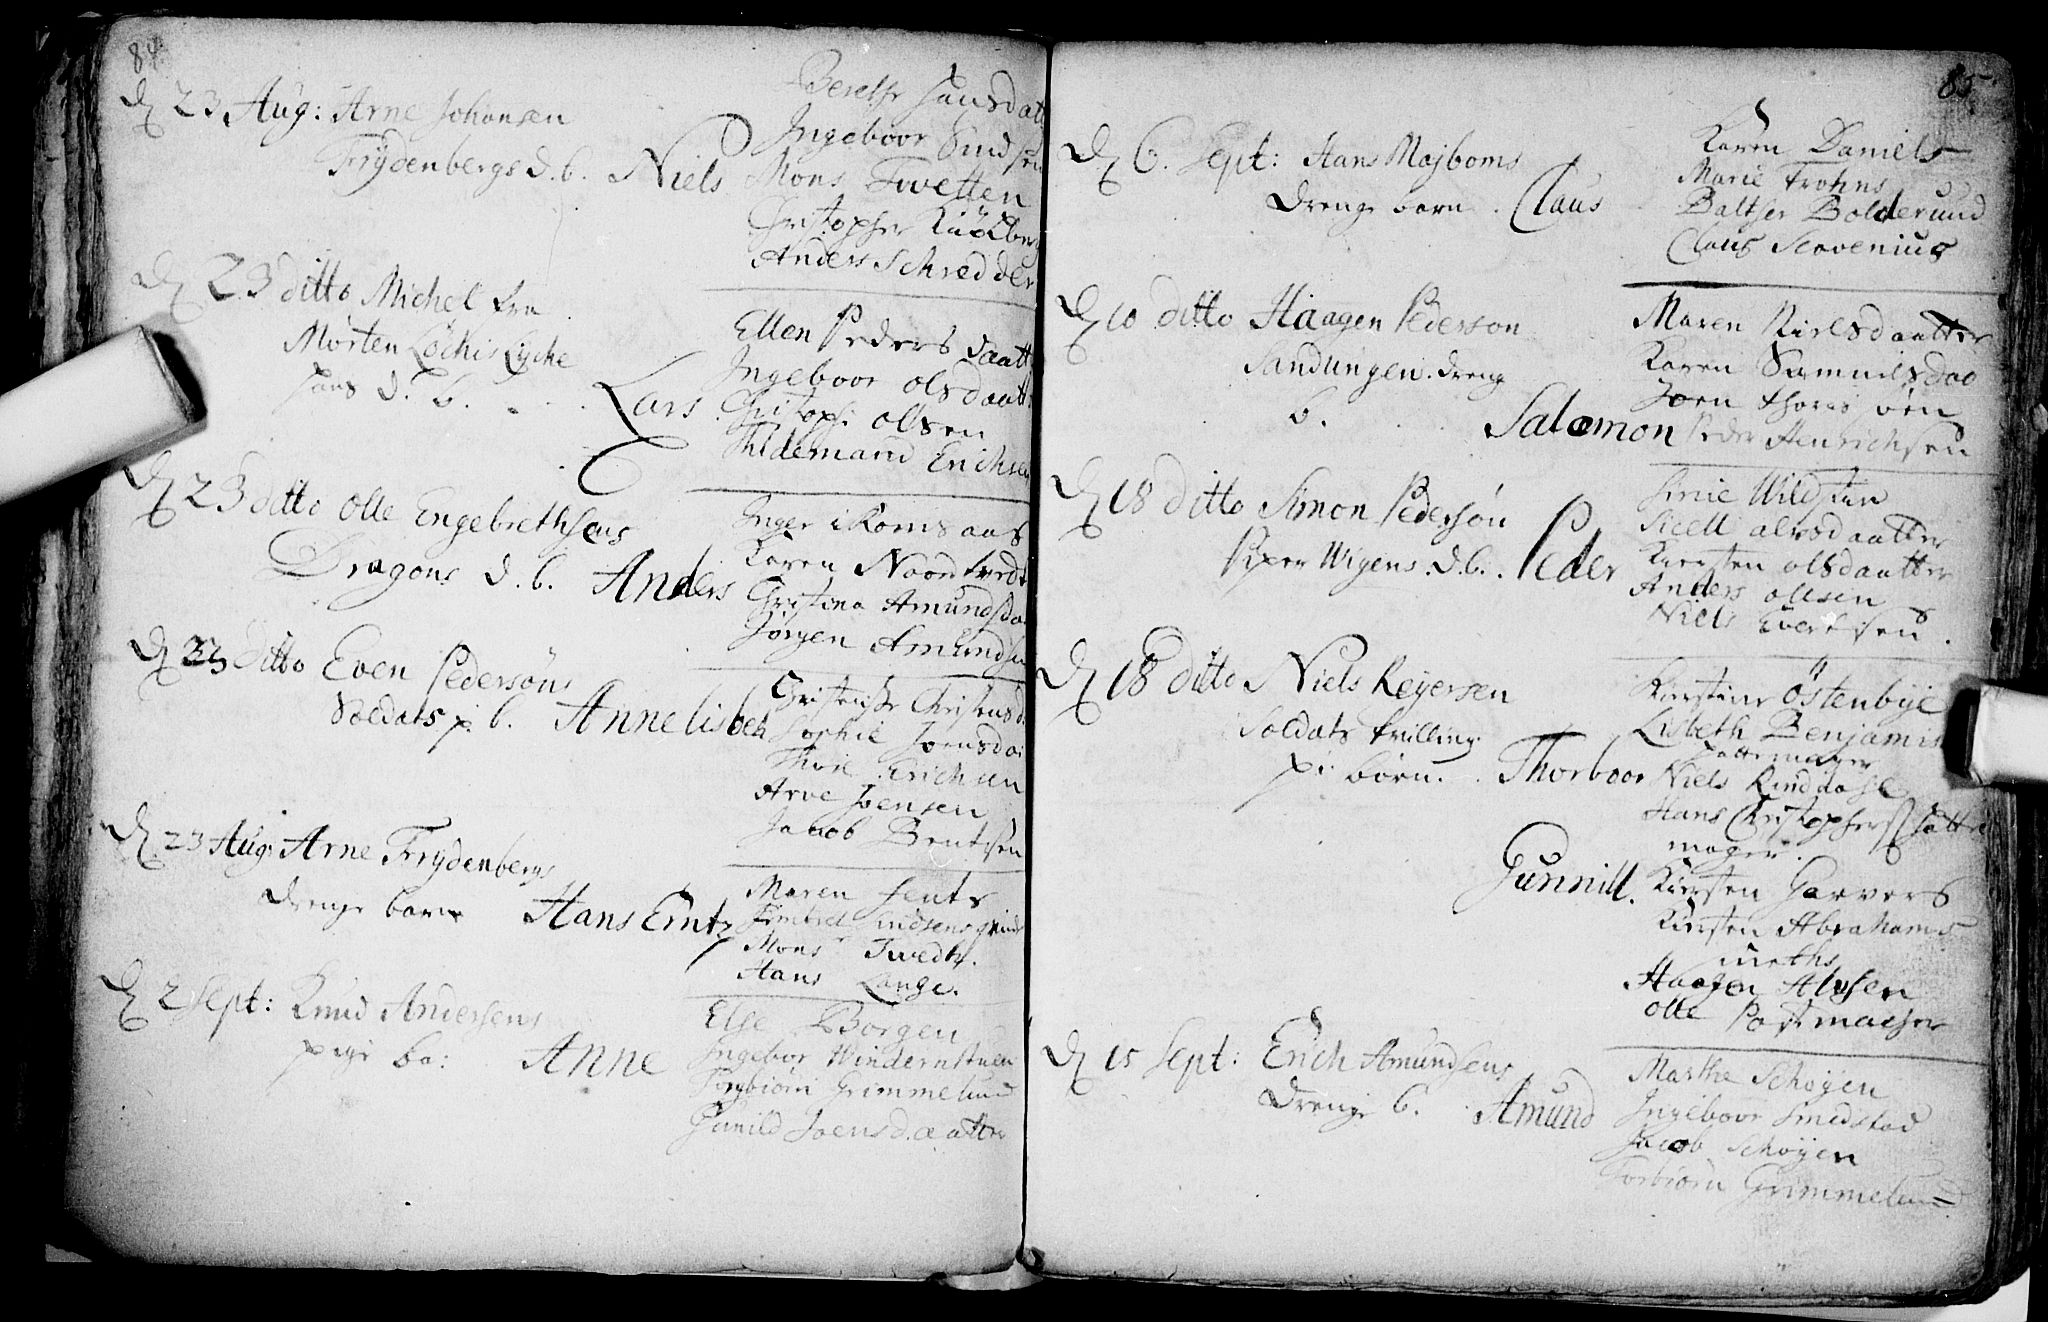 84.
D. 23 Aug: Arne Johansen
Frydenbergs d. b. Niels
Berethe Hansdatt
Ingeboor Lindsen
Mons Twetten
Christopher
Anders Schredder
D. 23 ditto Michel fra
Morten Løchis Lyche
hans d. b. Lars
Ellen Peders daatt
Ingeboor olsdaatt
Christoph: ollsen
Hildemand Erichsen
D. 23 ditto Olle Engebrethsens
Dragons d. b. Anders
Inger i Komsaas
Karen
Christina Amundsda
Jørgen Amundsen
D. 23 ditto Even Pedersøns
Soldats p. b. Annelisbeth
Christense Christensd
Sophie Joensda
Erichsen
Arve Joensen
Jacob Bentsen
D. 23 Aug: Arne Frydenbergs
drenge barn Hans Erntz
Maren Jents
Lindsens
Mons Twedt
Hans Lange.
D. 2 Sept: Knud Andersens
pige ba: Anne
Else Borgen
Ingebor Windernstuen
Torbiørn Grimmelund
Gunild Joensdaatter
85
D. 6. Sept: Hans Majboms
drenge barn. Claus
Karen Daniels
Marie Frohns
Baltser Bolderund
Claus Scavenius
D. 10 ditto Haagen Pederson
Sandungen. dreng
b. Salomon
Maren Nielsdaatter
Karen Samuelsdaa
Joen
Peder Henrichsen
D. 18 ditto Simon Pedersøn
Piper Wigens. d. b. Peder
Sirie
Sicell alvsdaatter
Kiersten olsdaatter
Anders ollsen
Niels Evertsen.
D. 18 ditto Niels Reyersen
Soldats tvilling
pi. børn. Thorboor
Kirstine Østenbye
Lisbeth Benjamin
hattemager
Niels Rinddahl
Hans Christophers hatte
mager.
Gunnill.
Kirsten Garvers
Kirsten Abrahams
Haagen Alvsen
Olle Postmacher
D. 15 Sept: Erich Amundsens
Drenge b. Amund
Marthe Schøyen
Ingeboor Smedstad
Jacob Schøyen
Torbiørn Grimmelun=